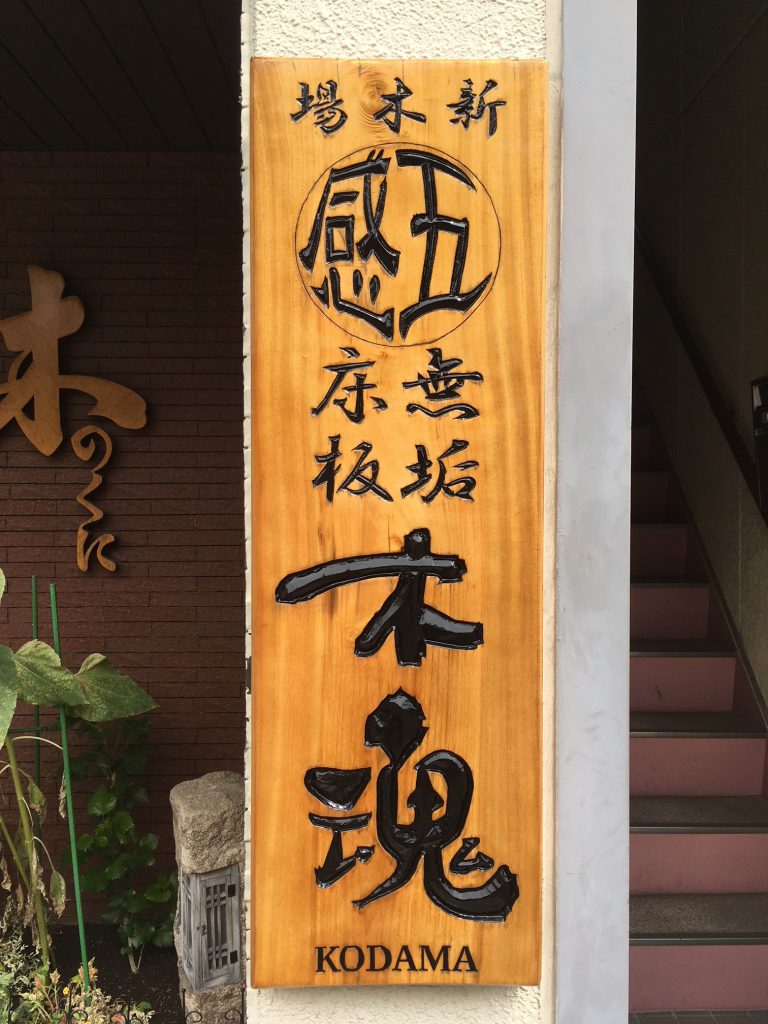 新木場
五感
無垢
床板
木魂
KODAMA
木のくに